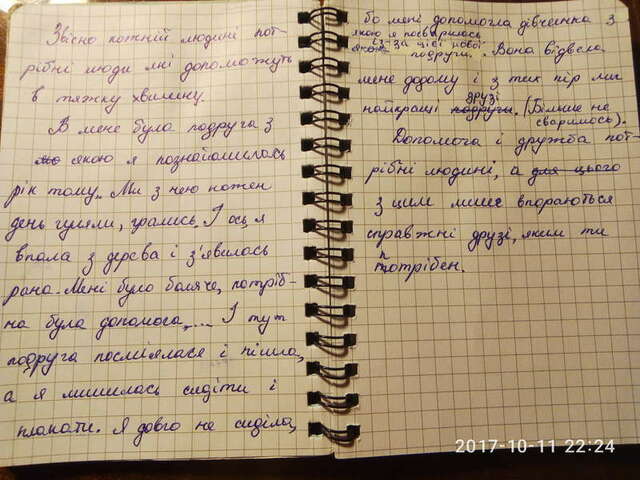 Звісно кожній людині пот-
рібні люди які допоможуть
в тяжку хвилину.
В мене була подруга з
якою я познайомилась
рік тому. Ми з нею кожен
день гуляли, грались. І ось я
впала з дерева і з'явилась
рана. Мені було боляче, потріб-
на була допомога,... І тут
подруга посміялася і пішла,
а я лишилась сидіти і
плакати. Я довго не сиділа,
бо мені допомогла дівчинка з
якою я посварилась
із-за цієї нової
подруги. Вона відвела
мене додому і з тих пір ми
найкращі друзі. (Більше не
сварились).
Допомога і дружба пот-
рібні людині, а для цього
з цим лише впораються
справжні друзі, яким ти
потрібен.
2017-10-11 22:24